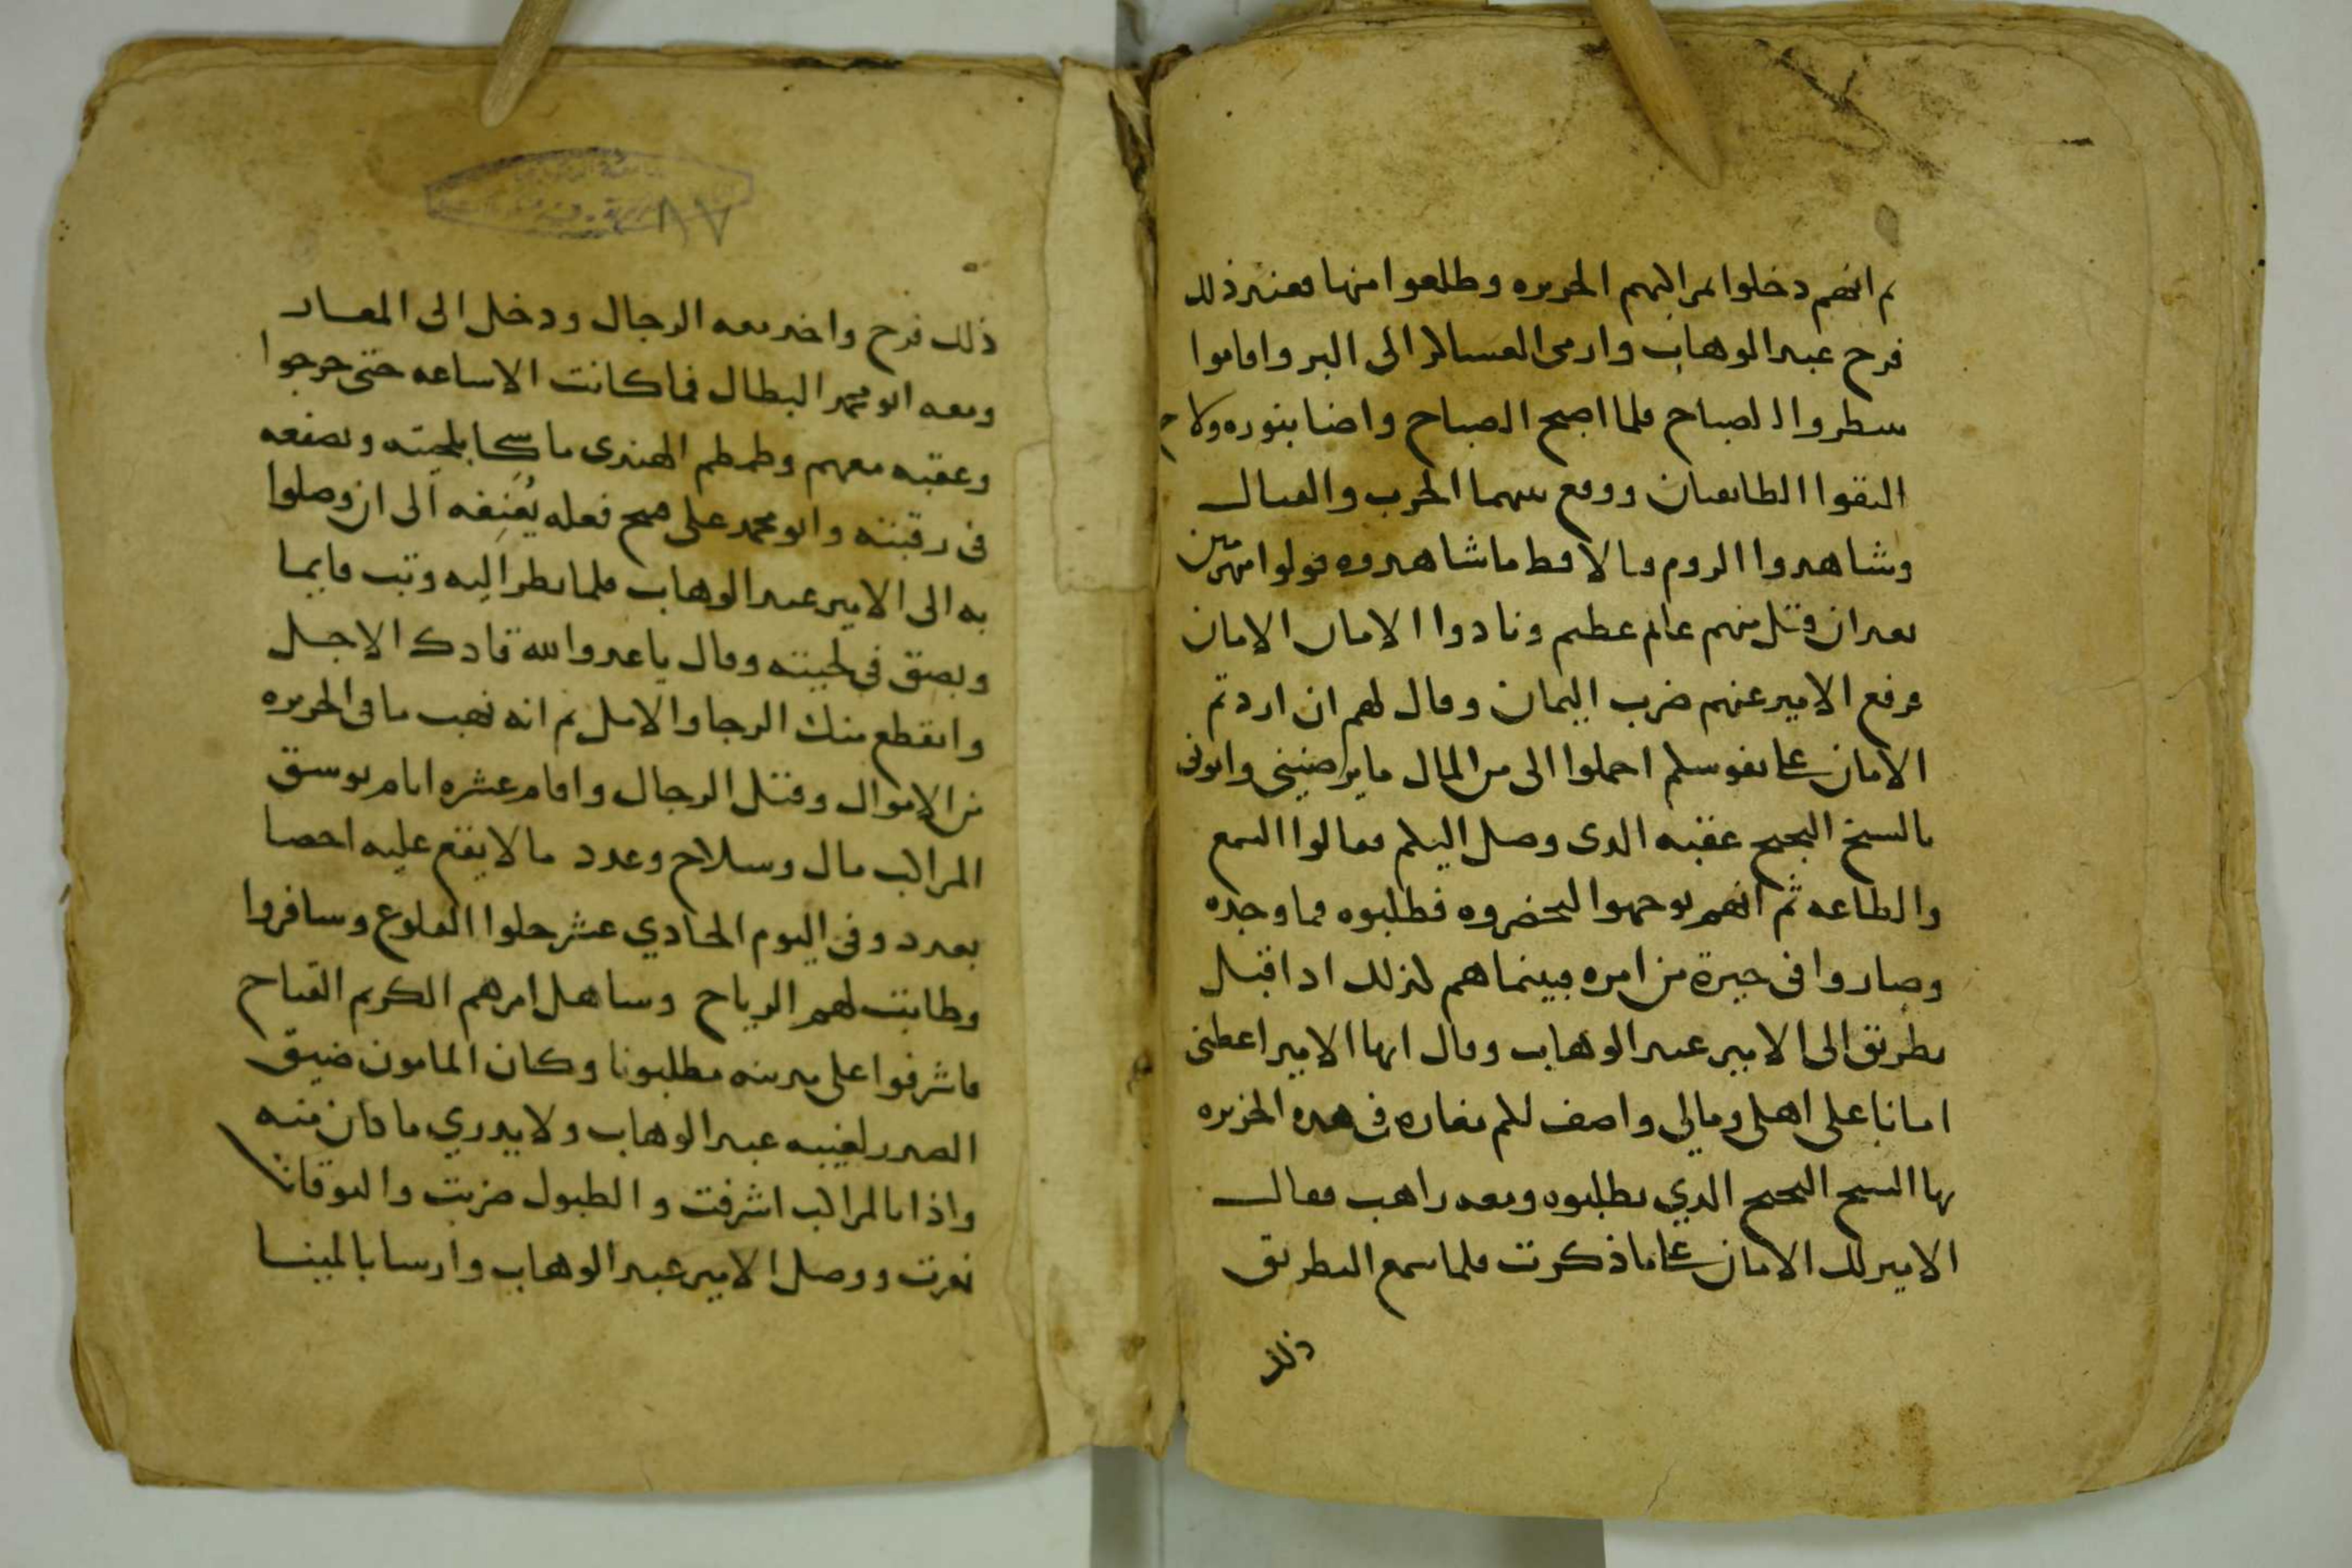 ثم انهم دخلوا مراكبهم الجزيره وطلعوا منها فعند ذلك
فرح عبد الوهاب وارمى العساكر الى البر واقاموا
ينتظروا الصباح فلما اصبح الصباح واضا بنوره ولاح
التقوا الطايفتان ووقع بينهما الحرب والقتال
وشاهدوا الروم وبالا قط ما شاهدوه فولوا منهزمين
بعد ان قتل منهم عالم عظيم ونادوا الامان الامان
فرفع الامير عنهم ضرب اليمان وقال لهم ان اردتم
الامان على نفوسكم احملوا الى من المال ما يرضيني واتوني
بالشيخ عقبه الذى وصل اليكم فقالوا السمع
والطاعه ثم انهم توجهوا ليحضروه فطلبوه فما وجده
وصاروا في حيرة من امره فبينما هم كذلك اذ اقبل
بطريق الى الامير عبد الوهاب وقال ايها الامير اعطني
امانا على اهلى ومالي واصف لكم مغاره فى هذه الجزيره
بها الشيخ الذي تطلبوه ومعه راهب فقال
الامير لك الامان على ما ذكرت فلما سمع البطريق
ذلك
٨٧
ذلك فرح واخد معه الرجال ودخل الى المغار
ومعه ابو محمد البطال فما كانت الا ساعه حتى خرجوا
وعقبه معهم وطمطم الهندى ماسكا بلحيته وبصفعه
في رقبته وابو محمد على قبح فعله يُعنِفه الى ان وصلوا
به الى الامير عبد الوهاب فلما نظر اليه وثب قايما
وبصق في لحيته وقال يا عدو الله قادك الاجل
وانقطع منك الرجا والامل ثم انه نهب ما فى الجزيره
من الاموال وقتل الرجال واقام عشره ايام يوسق
المراكب مال وسلاح وعدد ما لا يقع عليه احصا
بعدد وفى اليوم الحادي عشر حلوا القلوع وسافروا
وطابت لهم الرياح وساهل امرهم الكريم الفتاح
فاشرفوا على مدينه مطلبونا وكان المامون ضيق
الصدر لغيبه عبد الوهاب ولا يدري ما كان منه
واذا بالمراكب اشرفت والطبول ضربت والبوقات
نعرت ووصل الامير عبد الوهاب وارسا بالمينا